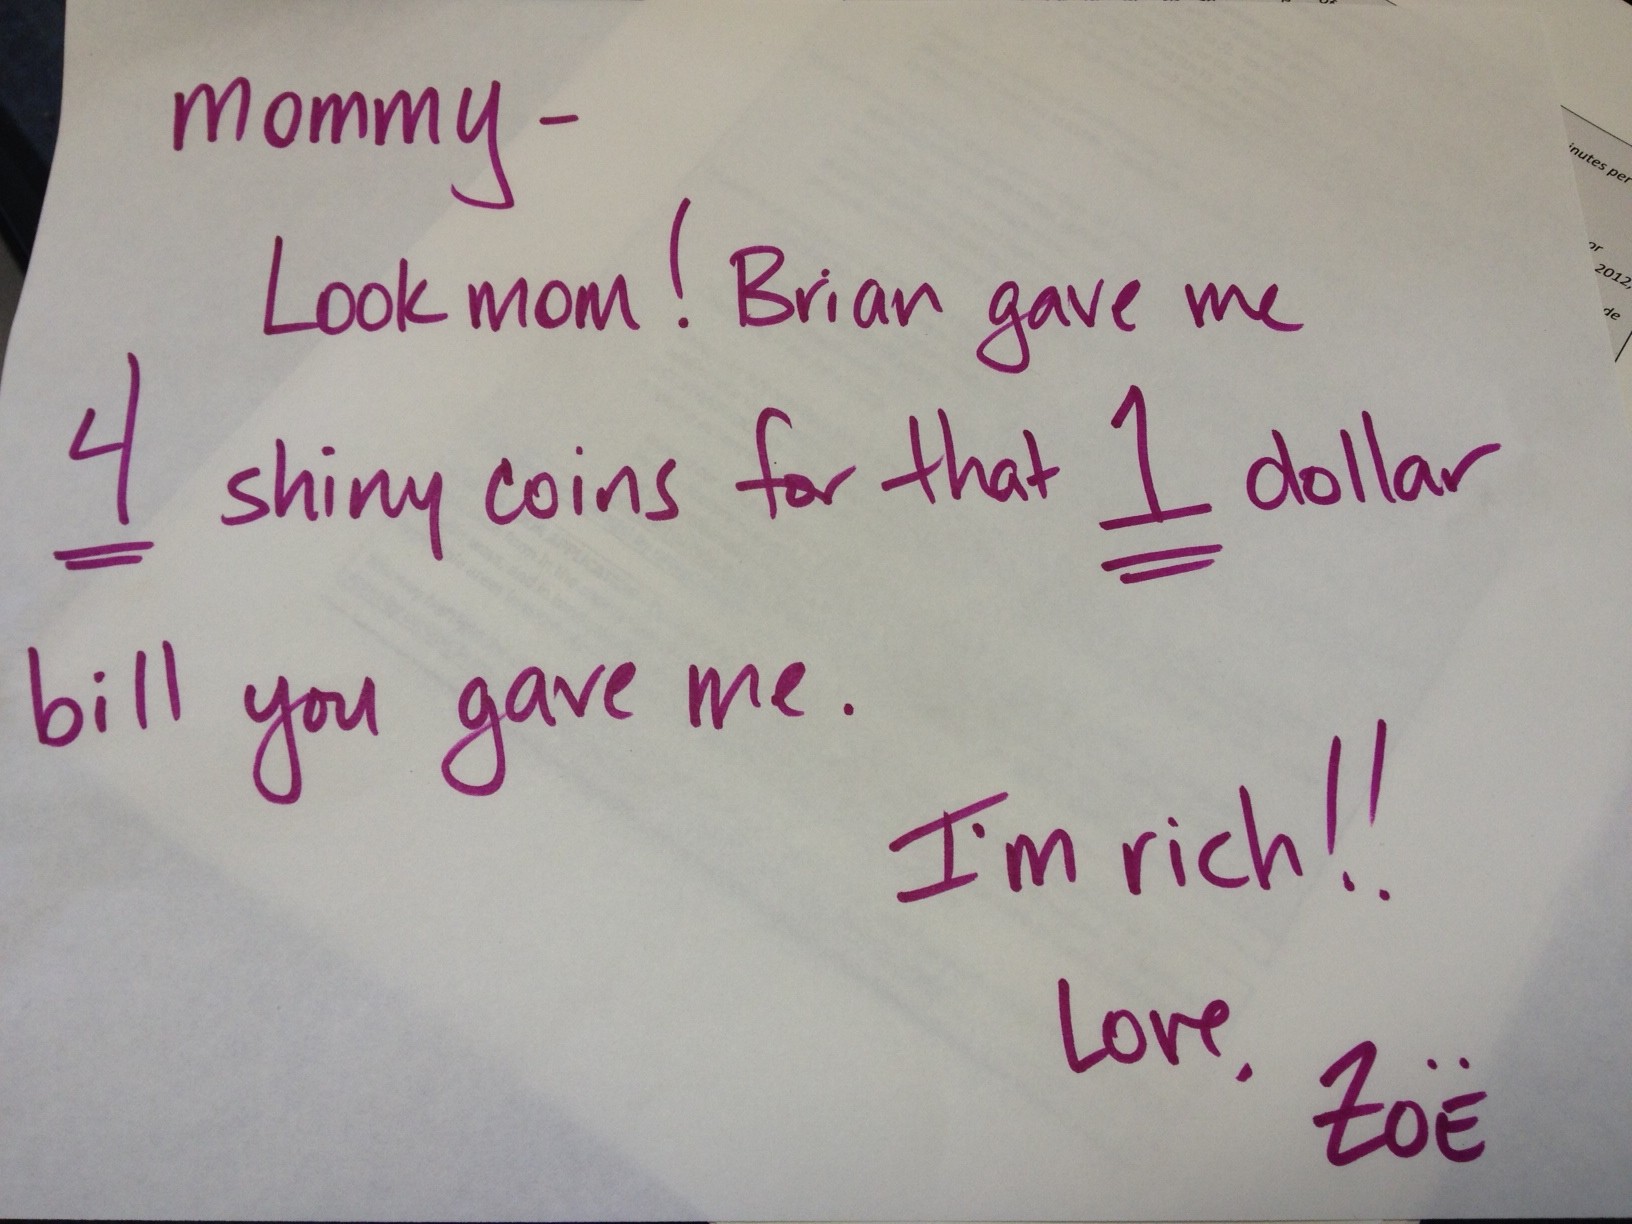 mommy -
Look mom! Brian gave me
4 shiny coins for that 1 dollar
bill you gave me.
I'm rich!!
Love,
ZOË
inutes per
or
2012,
de